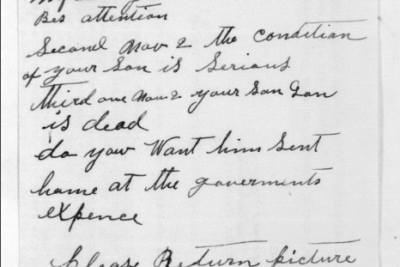 Bes attention
Second Nov 2 the condition
of your Son is Serious
third one Nov 2 your Son
is dead
do you Want him Sent
home at the goverments
expence
Please Return picture